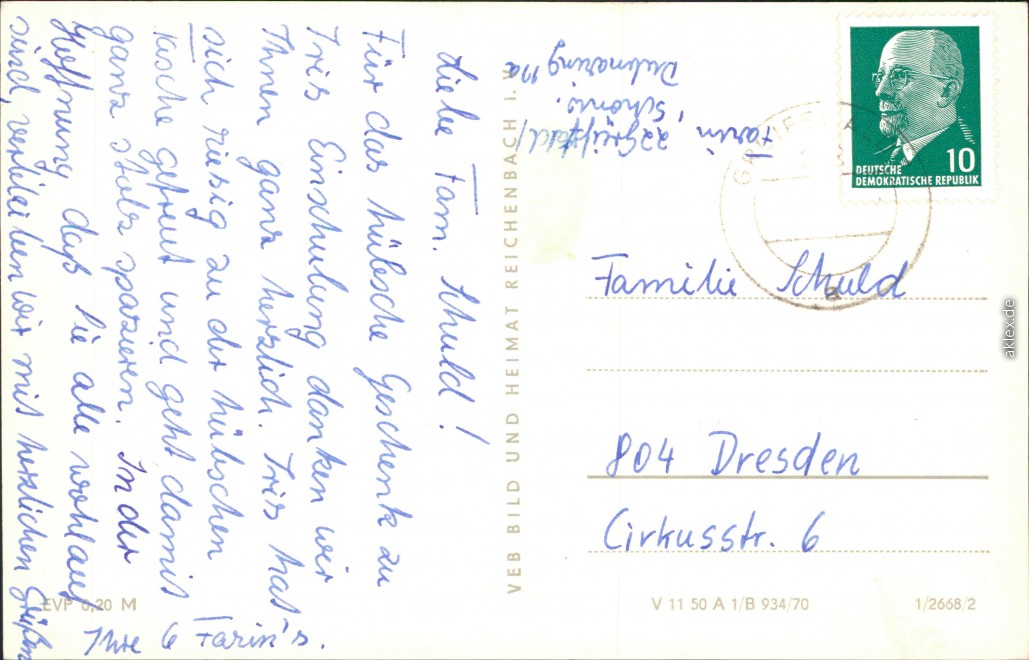 Liebe Fam. Schuld!
Für das hübsche Geschenk zu
Iris Einschulung danken wir
Ihnen ganz herzlich. Iris hat
sich riesig zu der hübschen
Tasche gefreut und geht damit
ganz stolz spazieren. In der
Hoffnung, daß Sie alle wohlauf
sind, verbleiben wir mit herzlichen Grüßen
Ihre 6 Farin's.
Farin,
22 Greifswald/
Schönw.
11a
DEUTSCHE
DEMOKRATISCHE REPUBLIK
10
Familie Schuld
804 Dresden
Cirkusstr. 6
VEB BILD UND HEIMAT REICHENBACH I. V.
EVP 0,20 M
V 11 50 A 1/B 934/70
1/2668/2
aklex.de